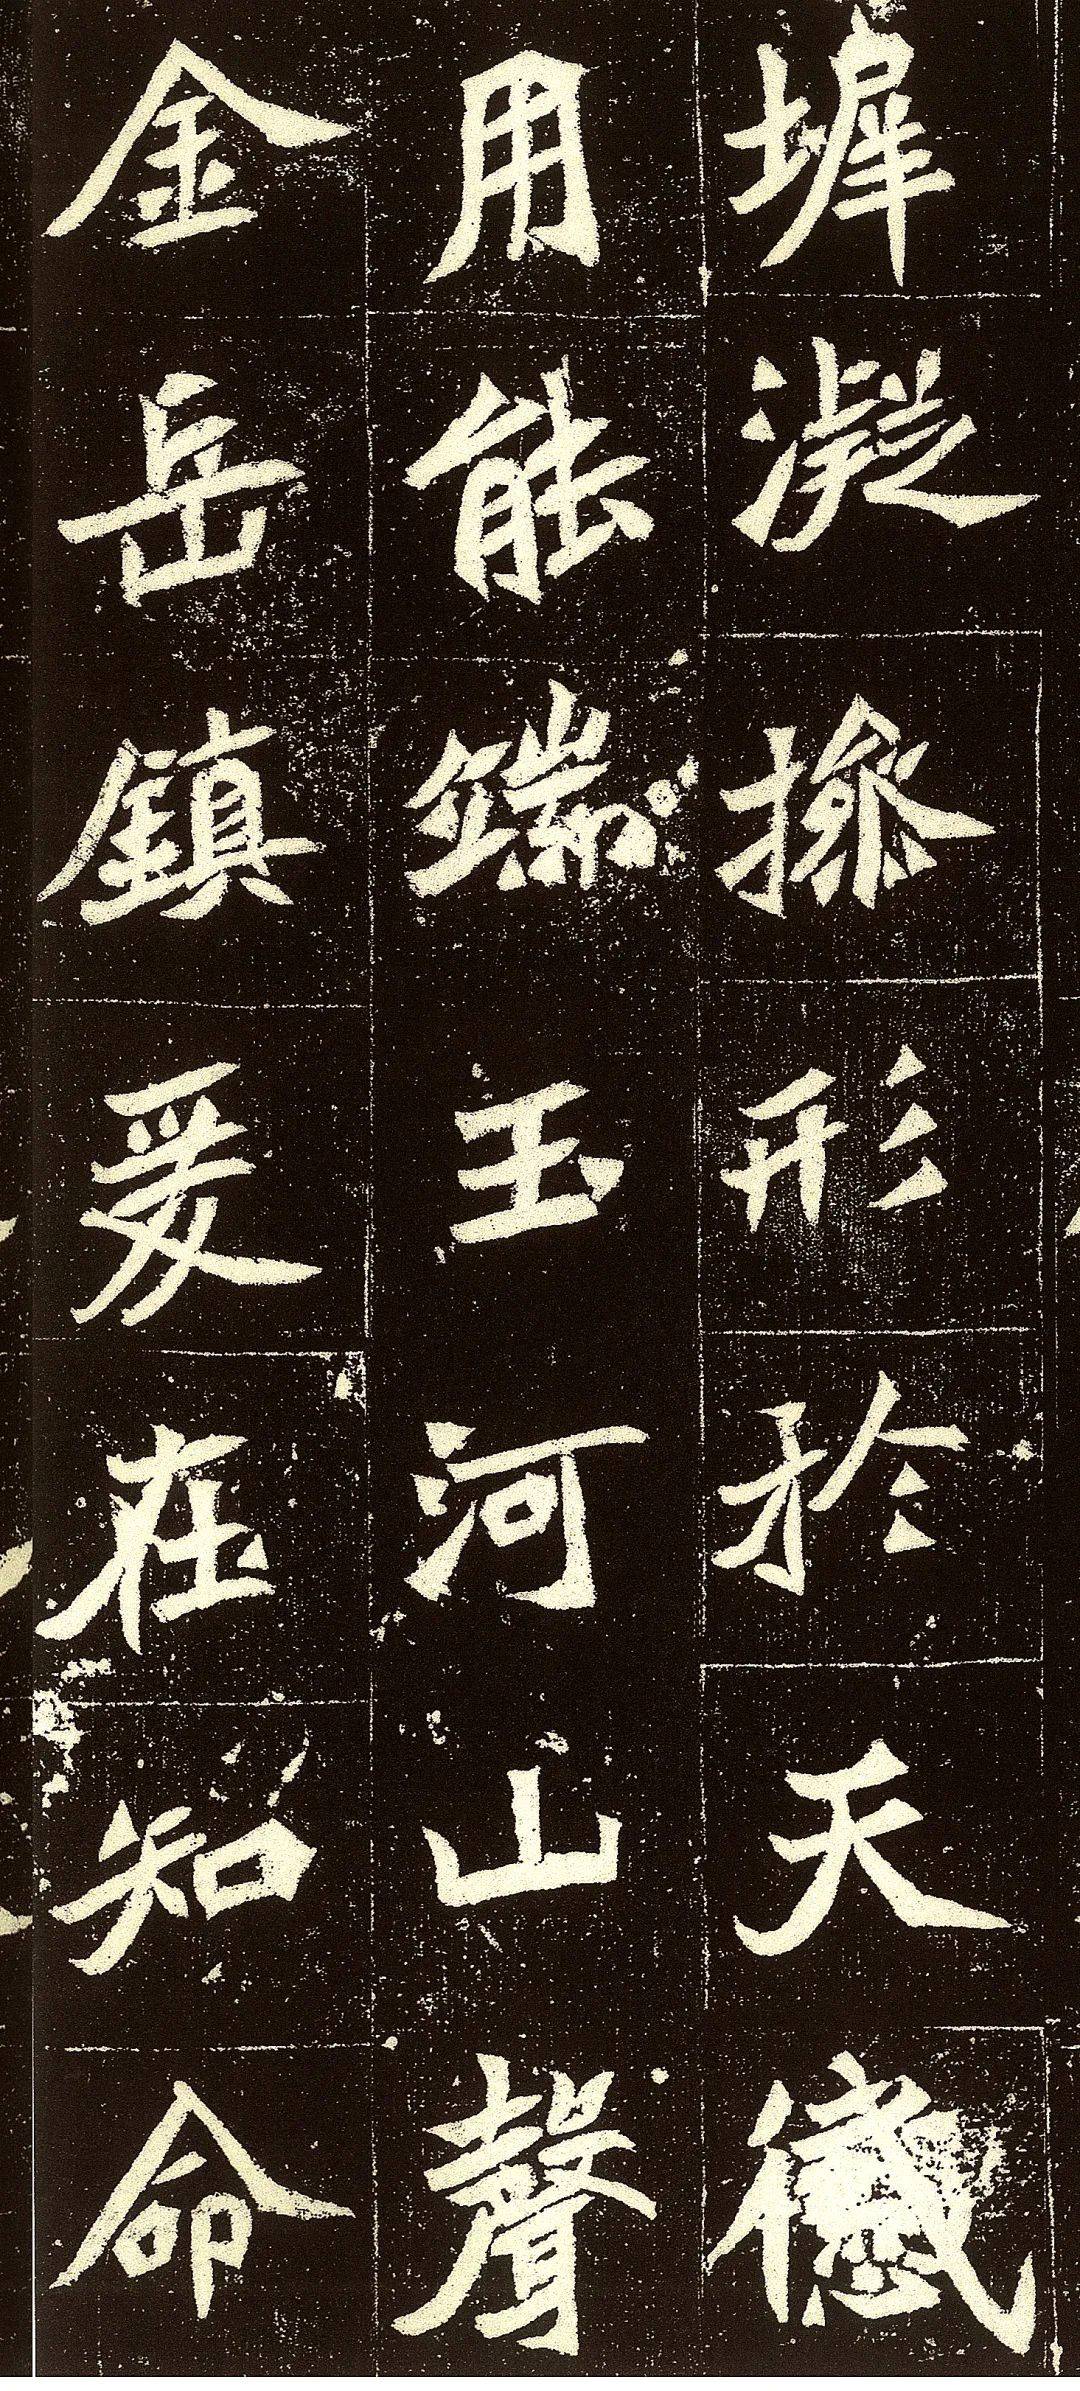 墀凝操形於天
用能端玉河山聲
金岳鎮爰在知命